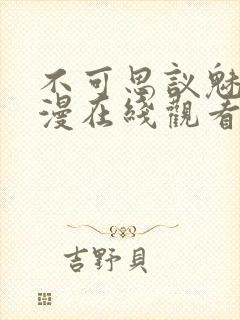 不可思议魅
漫在线觀看
吉野貝